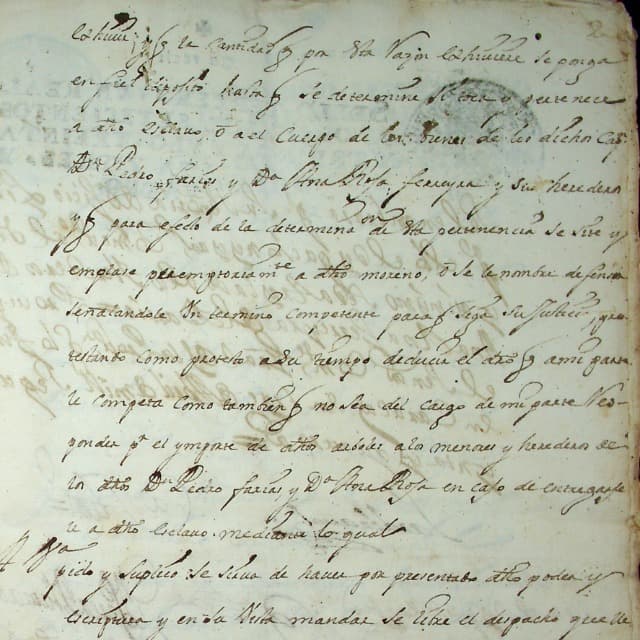 y q̃ la cantidad q̃ por esta razon se ponga
en fiel deposito hasta q̃ se determine si toca o pertenece
a dho esclavo, o a el cuerpo de los bienes de los dichos
Dn Pedro farias y Da Ana Rosa ferreyra y sus herederos
y q̃ para efecto de la determinaon de esta pertenencia se site y
emplase peremptoriamte a dho moreno, o se le nombre defensor
señalandole un termino competente para q̃ siga su Justicia, pro
testando como protesto a su tiempo deducir el dro q̃ a mi parte
le competa como tambien q̃ no sea del cargo de mi parte Res-
ponder pr el ymporte de dhos arboles a los menores y herederos de
los dhos Dn Pedro farias y Da Ana Rosa en caso de entregarse
le a dho esclavo mediante lo qual
pido y suplico se sirva de haver por presentado dho poder y
escriptura y en su vista mandar se libre el despacho que